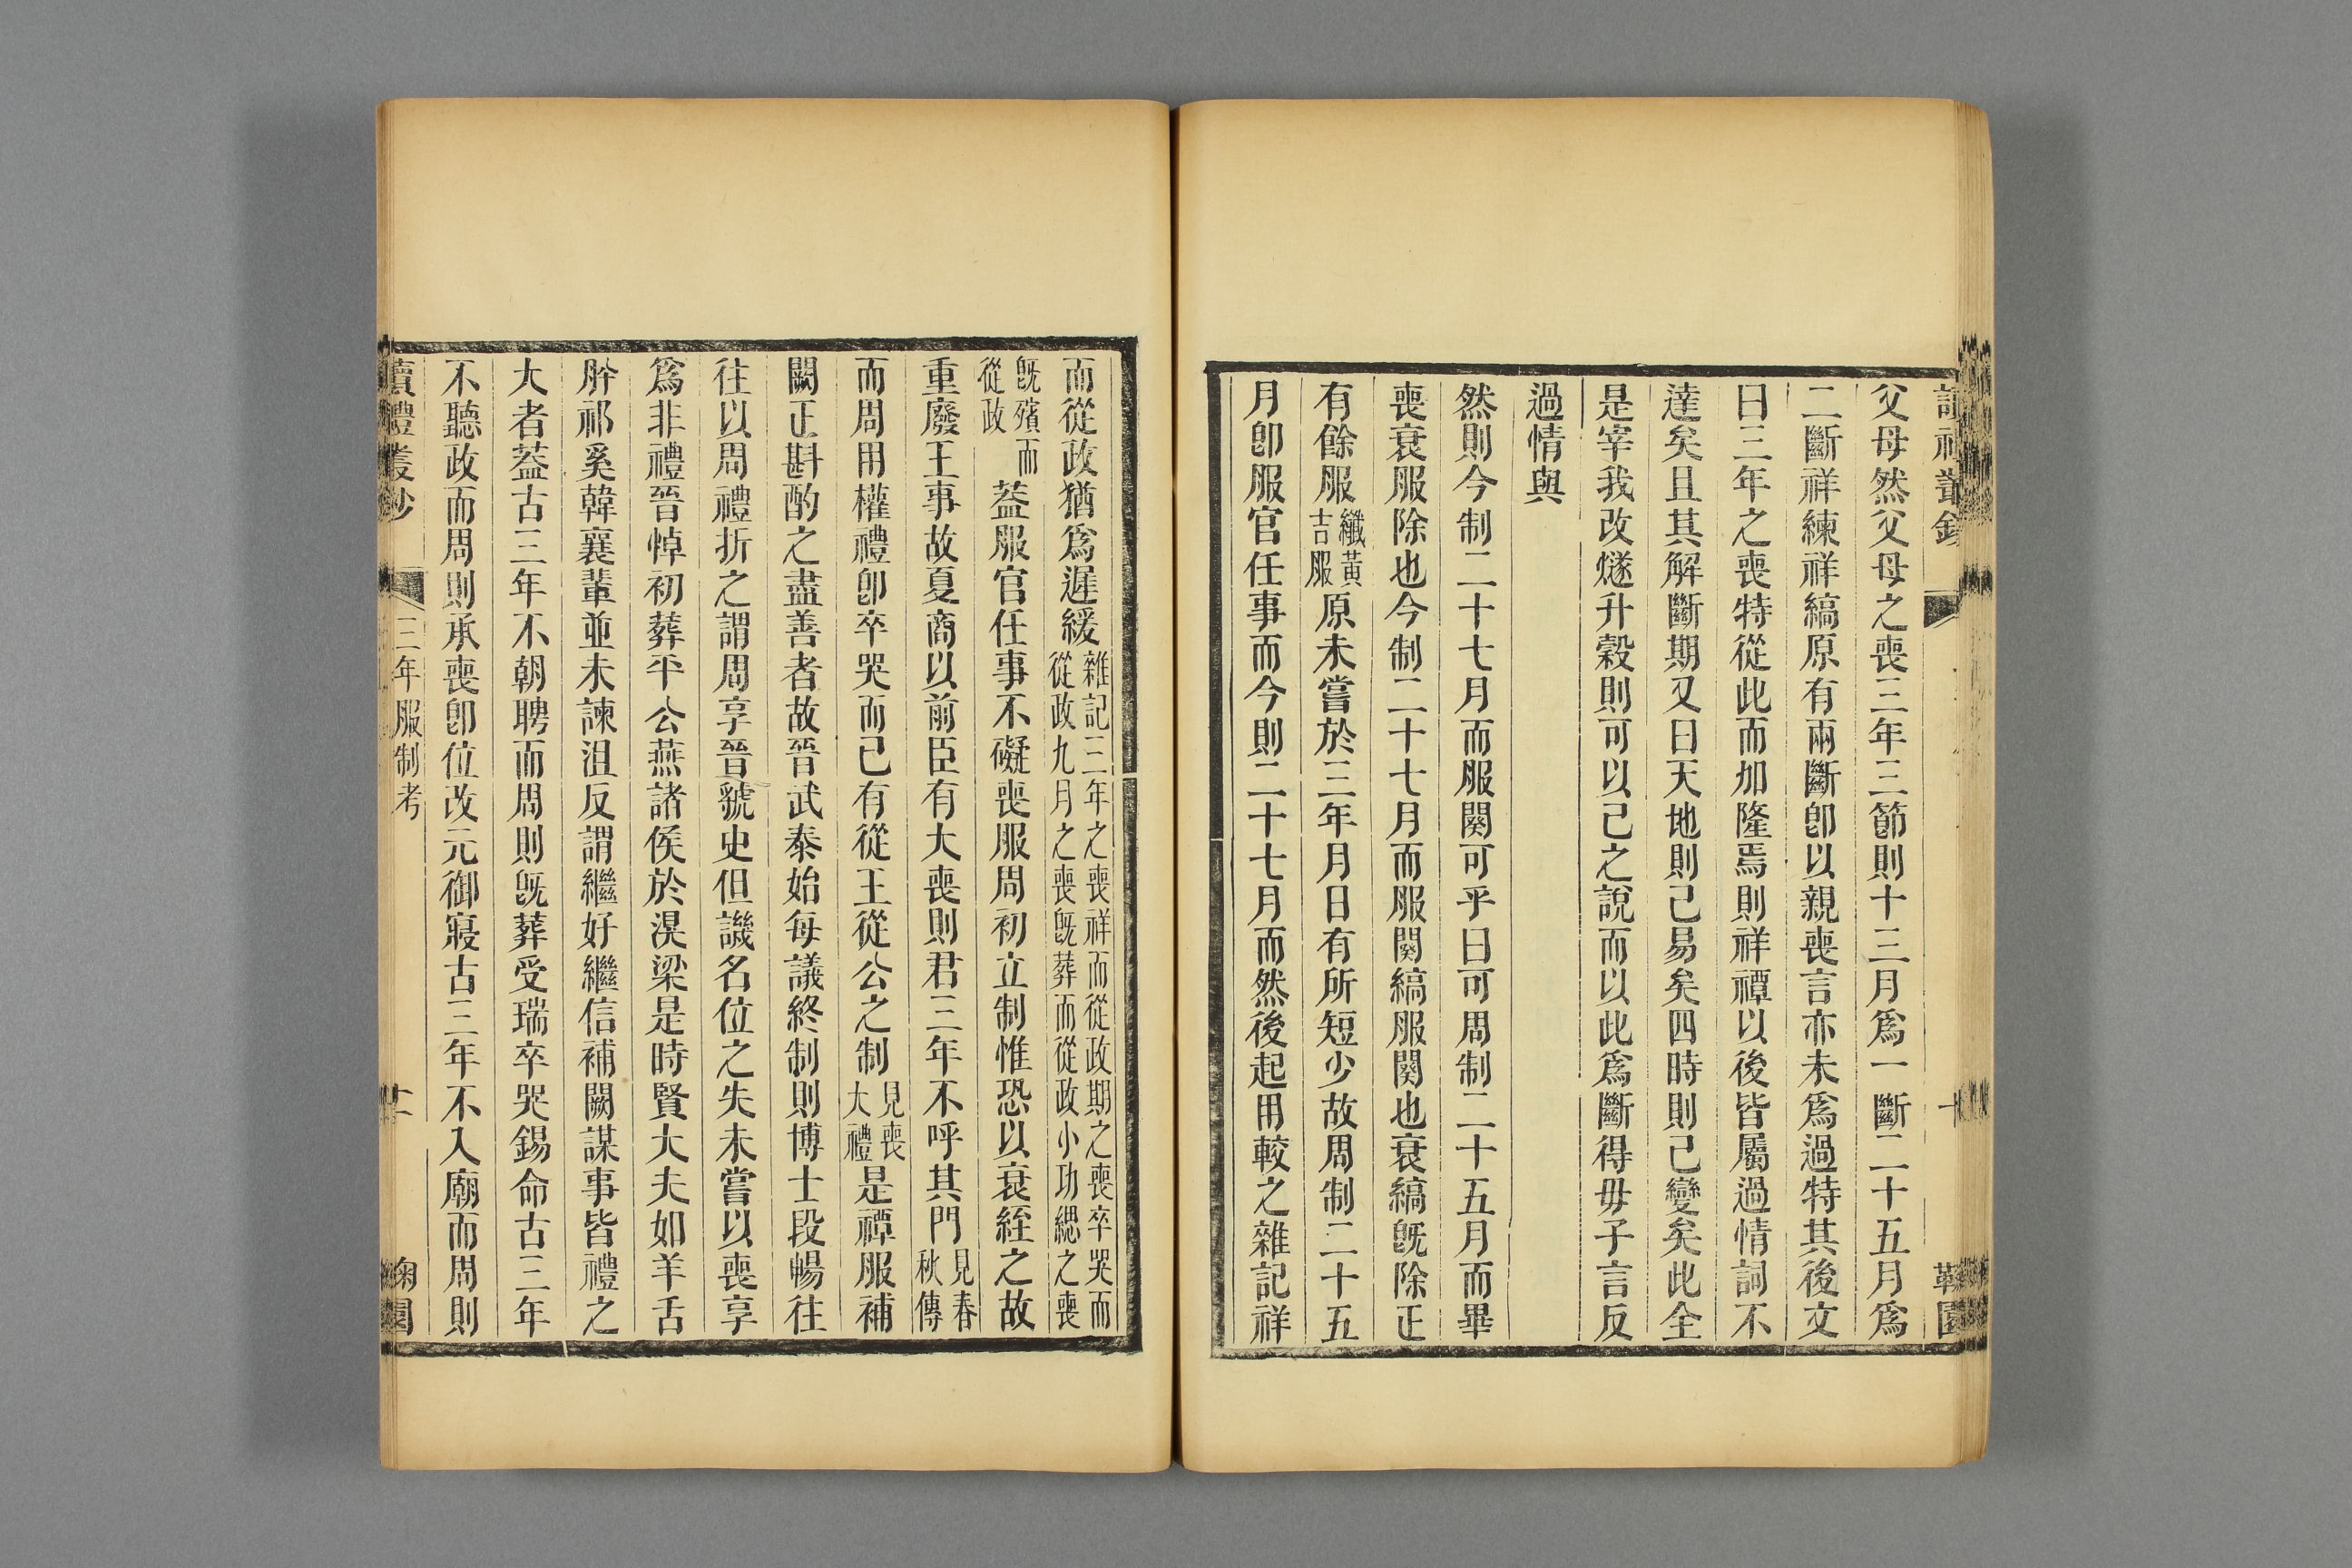 父母然父母之喪三年三節則十三月爲一斷二十五月爲
二斷祥練祥縞原有兩斷卽以親喪言亦未爲過特其後文
曰三年之喪特從此而加隆焉則祥禫以後皆屬過情詞不
達矣且其解斷期又曰天地則已易矣四時則已變矣此全
是宰我改燧升穀則可以已之說而以此爲斷得毋子言反
過情與
然則今制二十七月而服闋可乎曰可周制二十五月而畢
喪衰服除也今制二十七月而服闋縞服闋也衰縞旣除正
有餘服纖黃吉服原未嘗於三年月日有所短少故周制二十五
月卽服官任事而今則二十七月而然後起用較之雜記祥
而從政猶爲遲緩雜記三年之喪祥而從政期之喪卒哭而從政九月之喪旣葬而從政小功緦之喪
旣殯而從政蓋服官任事不礙喪服周初立制惟恐以衰絰之故
重廢王事故夏商以前臣有大喪則君三年不呼其門見春秋傳
而周用權禮卽卒哭而已有從王從公之制見喪大禮是禫服補
闕正斟酌之盡善者故晉武泰始每議終制則博士段暢往
往以周禮折之謂周享晉虢史但譏名位之失未嘗以喪享
爲非禮晉悼初葬平公燕諸侯於湨梁是時賢大夫如羊舌
肸祁奚韓襄輩並未諫沮反謂繼好繼信補闕謀事皆禮之
大者蓋古三年不朝聘而周則旣葬受瑞卒哭錫命古三年
不聽政而周則承喪卽位改元御寢古三年不入廟而周則
讀禮叢鈔 三年服制考 十二